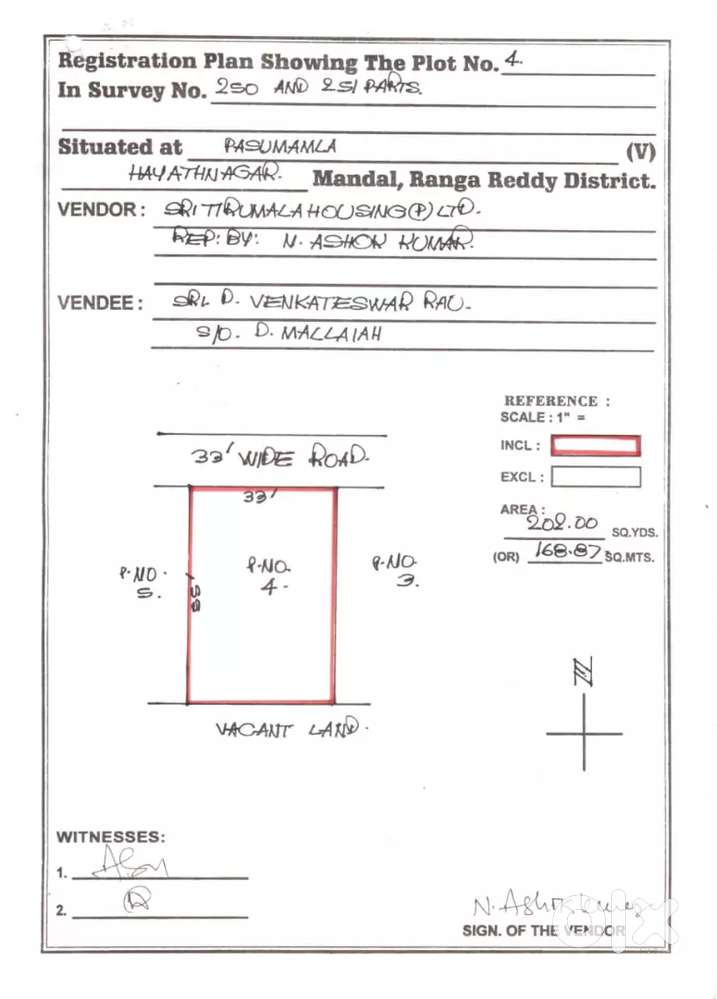 Registration Plan Showing The Plot No. 4.
In Survey No. 250 AND 251 PARTS.
Situated at PASUMAMLA (V)
HAYATHNAGAR. Mandal, Ranga Reddy District.
VENDOR : SRI TIRUMALA HOUSING (P) LTD.
REP: BY: N. ASHOK KUMAR.
VENDEE : SRI D. VENKATESWAR RAO.
S/O. D. MALLAIAH
REFERENCE :
SCALE : 1" =
INCL :
EXCL :
AREA :
202.00 SQ.YDS.
(OR) 168.87 SQ.MTS.
33' WIDE ROAD.
33'
P.NO. 5.
55'
P.NO. 4.
P.NO. 3.
VACANT LAND.
N
WITNESSES:
1.
2.
N. Ashok Kumar
SIGN. OF THE VENDOR
olx